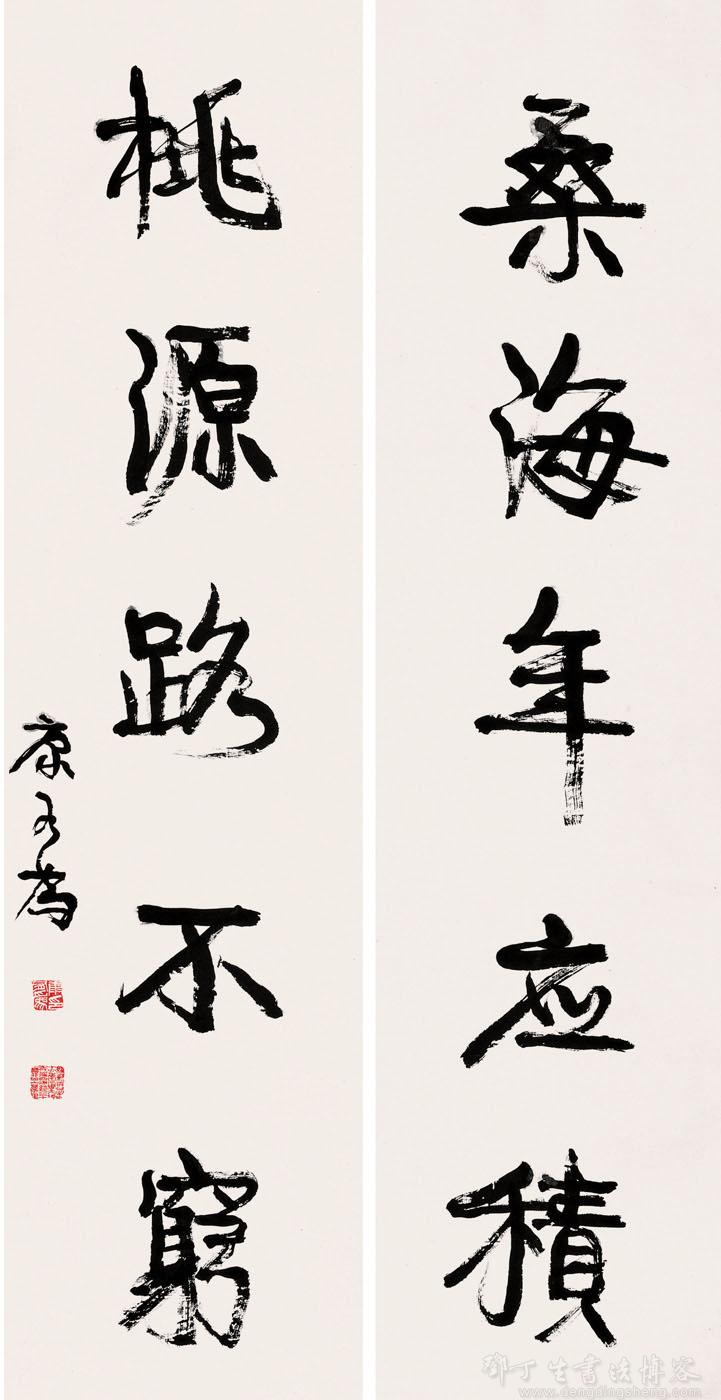 桑海年应積
桃源路不窮
康有為
鄧丁生書法博客
www.dengdingsheng.com